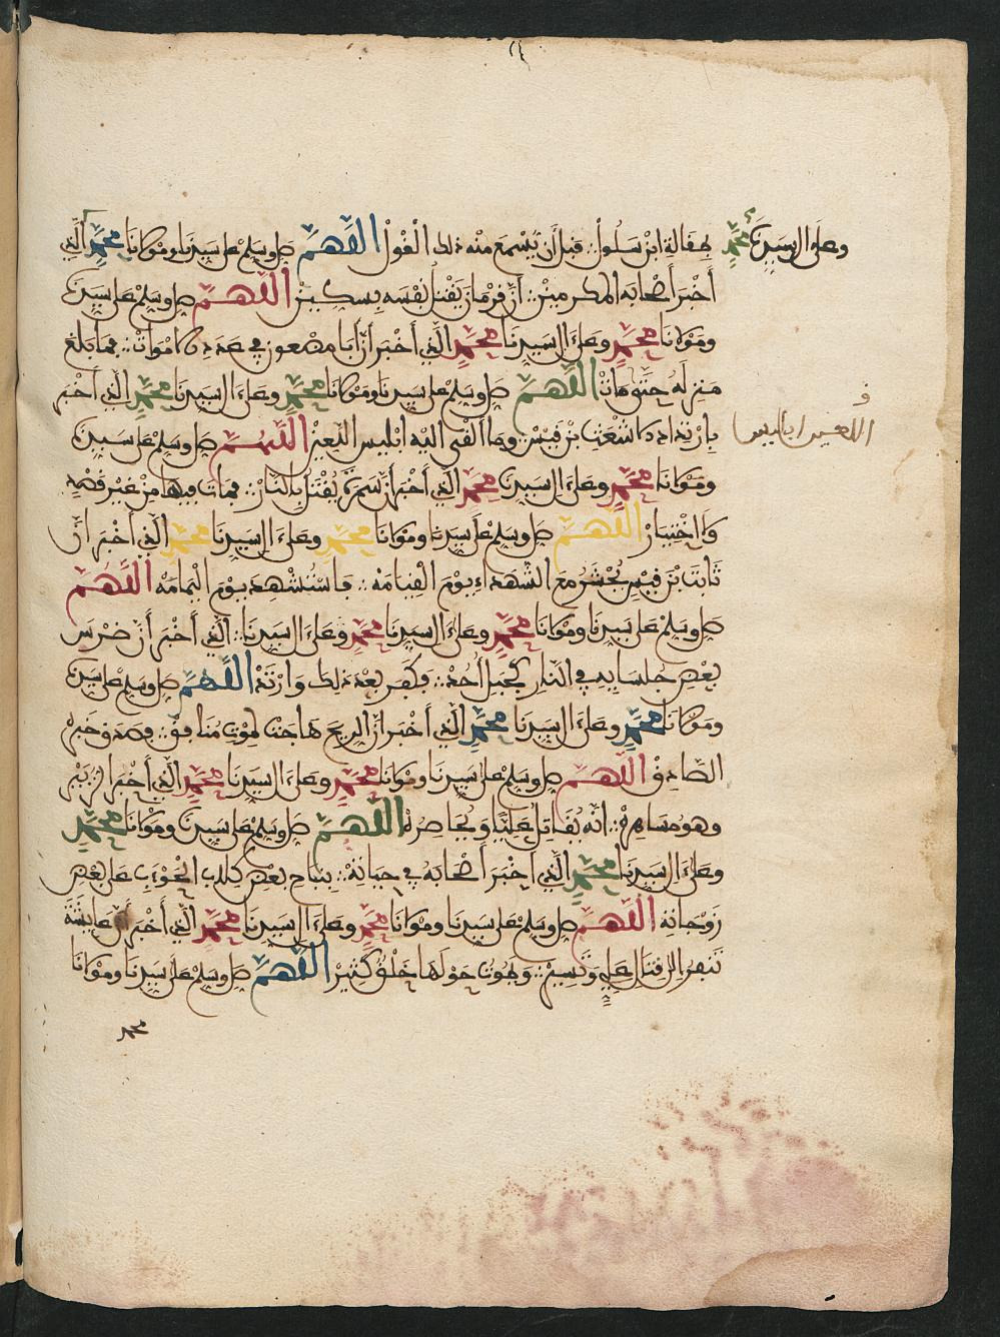 وعلى ال سيدنا محمد
بمقالة ابن سلول∴ قبل أن يسمع منه ذلك القول اللهم صل وسلم على سيدنا ومولانا محمد الذي
أخبر أصحابه المكرمين∴ أن قزمان يقتل نفسه بسكين اللهم صل وسلم على سيدنا
ومولانا محمد وعلى ال سيدنا محمد الذي أخبر أن أبا مضعون في عدد كالاموات∴ فما بلغ
منزله حتى مات اللهم صل وسلم على سيدنا ومولانا محمد وعلى ال سيدنا محمد الذي أخبر
بارتداد كاشعث بن قيس∴ وما ألقى اليه ابليس اللعين اللهم صل وسلم على سيدنا
اللعين ابليس
ومولانا محمد وعلى ال سيدنا محمد الذي أخبر أن سمرة يقتل بالنار∴ فمات فيها من غير قصد
ولا اختيار اللهم صل وسلم على سيدنا ومولانا محمد وعلى ال سيدنا محمد الذي أخبر أن
ثابت بن قيس يحشر مع الشهداء يوم القيامه∴ فاستشهد يوم اليمامه اللهم
صل وسلم على سيدنا ومولانا محمد وعلى ال سيدنا محمد وعلى ال سيدنا∴ الذي أخبر أن ضرس
بعض جلسايه في النار كجبل أحد∴ فكفر بعد ذلك وارتد اللهم صل وسلم على سيدنا
ومولانا محمد وعلى ال سيدنا محمد الذي أخبر أن الريح هاجت لموت منافق∴ فصدق خبره
الصادق اللهم صل وسلم على سيدنا ومولانا محمد وعلى ال سيدنا محمد الذي أخبر الزبير
وهو مسامره∴ انه يقاتل عليا ويحاصره اللهم صل وسلم على سيدنا ومولانا محمد
وعلى ال سيدنا محمد الذي اخبر أصحابه في حياته∴ بنباح بعض كلاب الحوءب على بعض
زوجاته اللهم صل وسلم على سيدنا ومولانا محمد وعلى ال سيدنا محمد الذي أخبر أن عايشة
تنفر الى قتال علي وتسير∴ ويموت حولها خلق كثير اللهم صل وسلم على سيدنا ومولانا
محمد